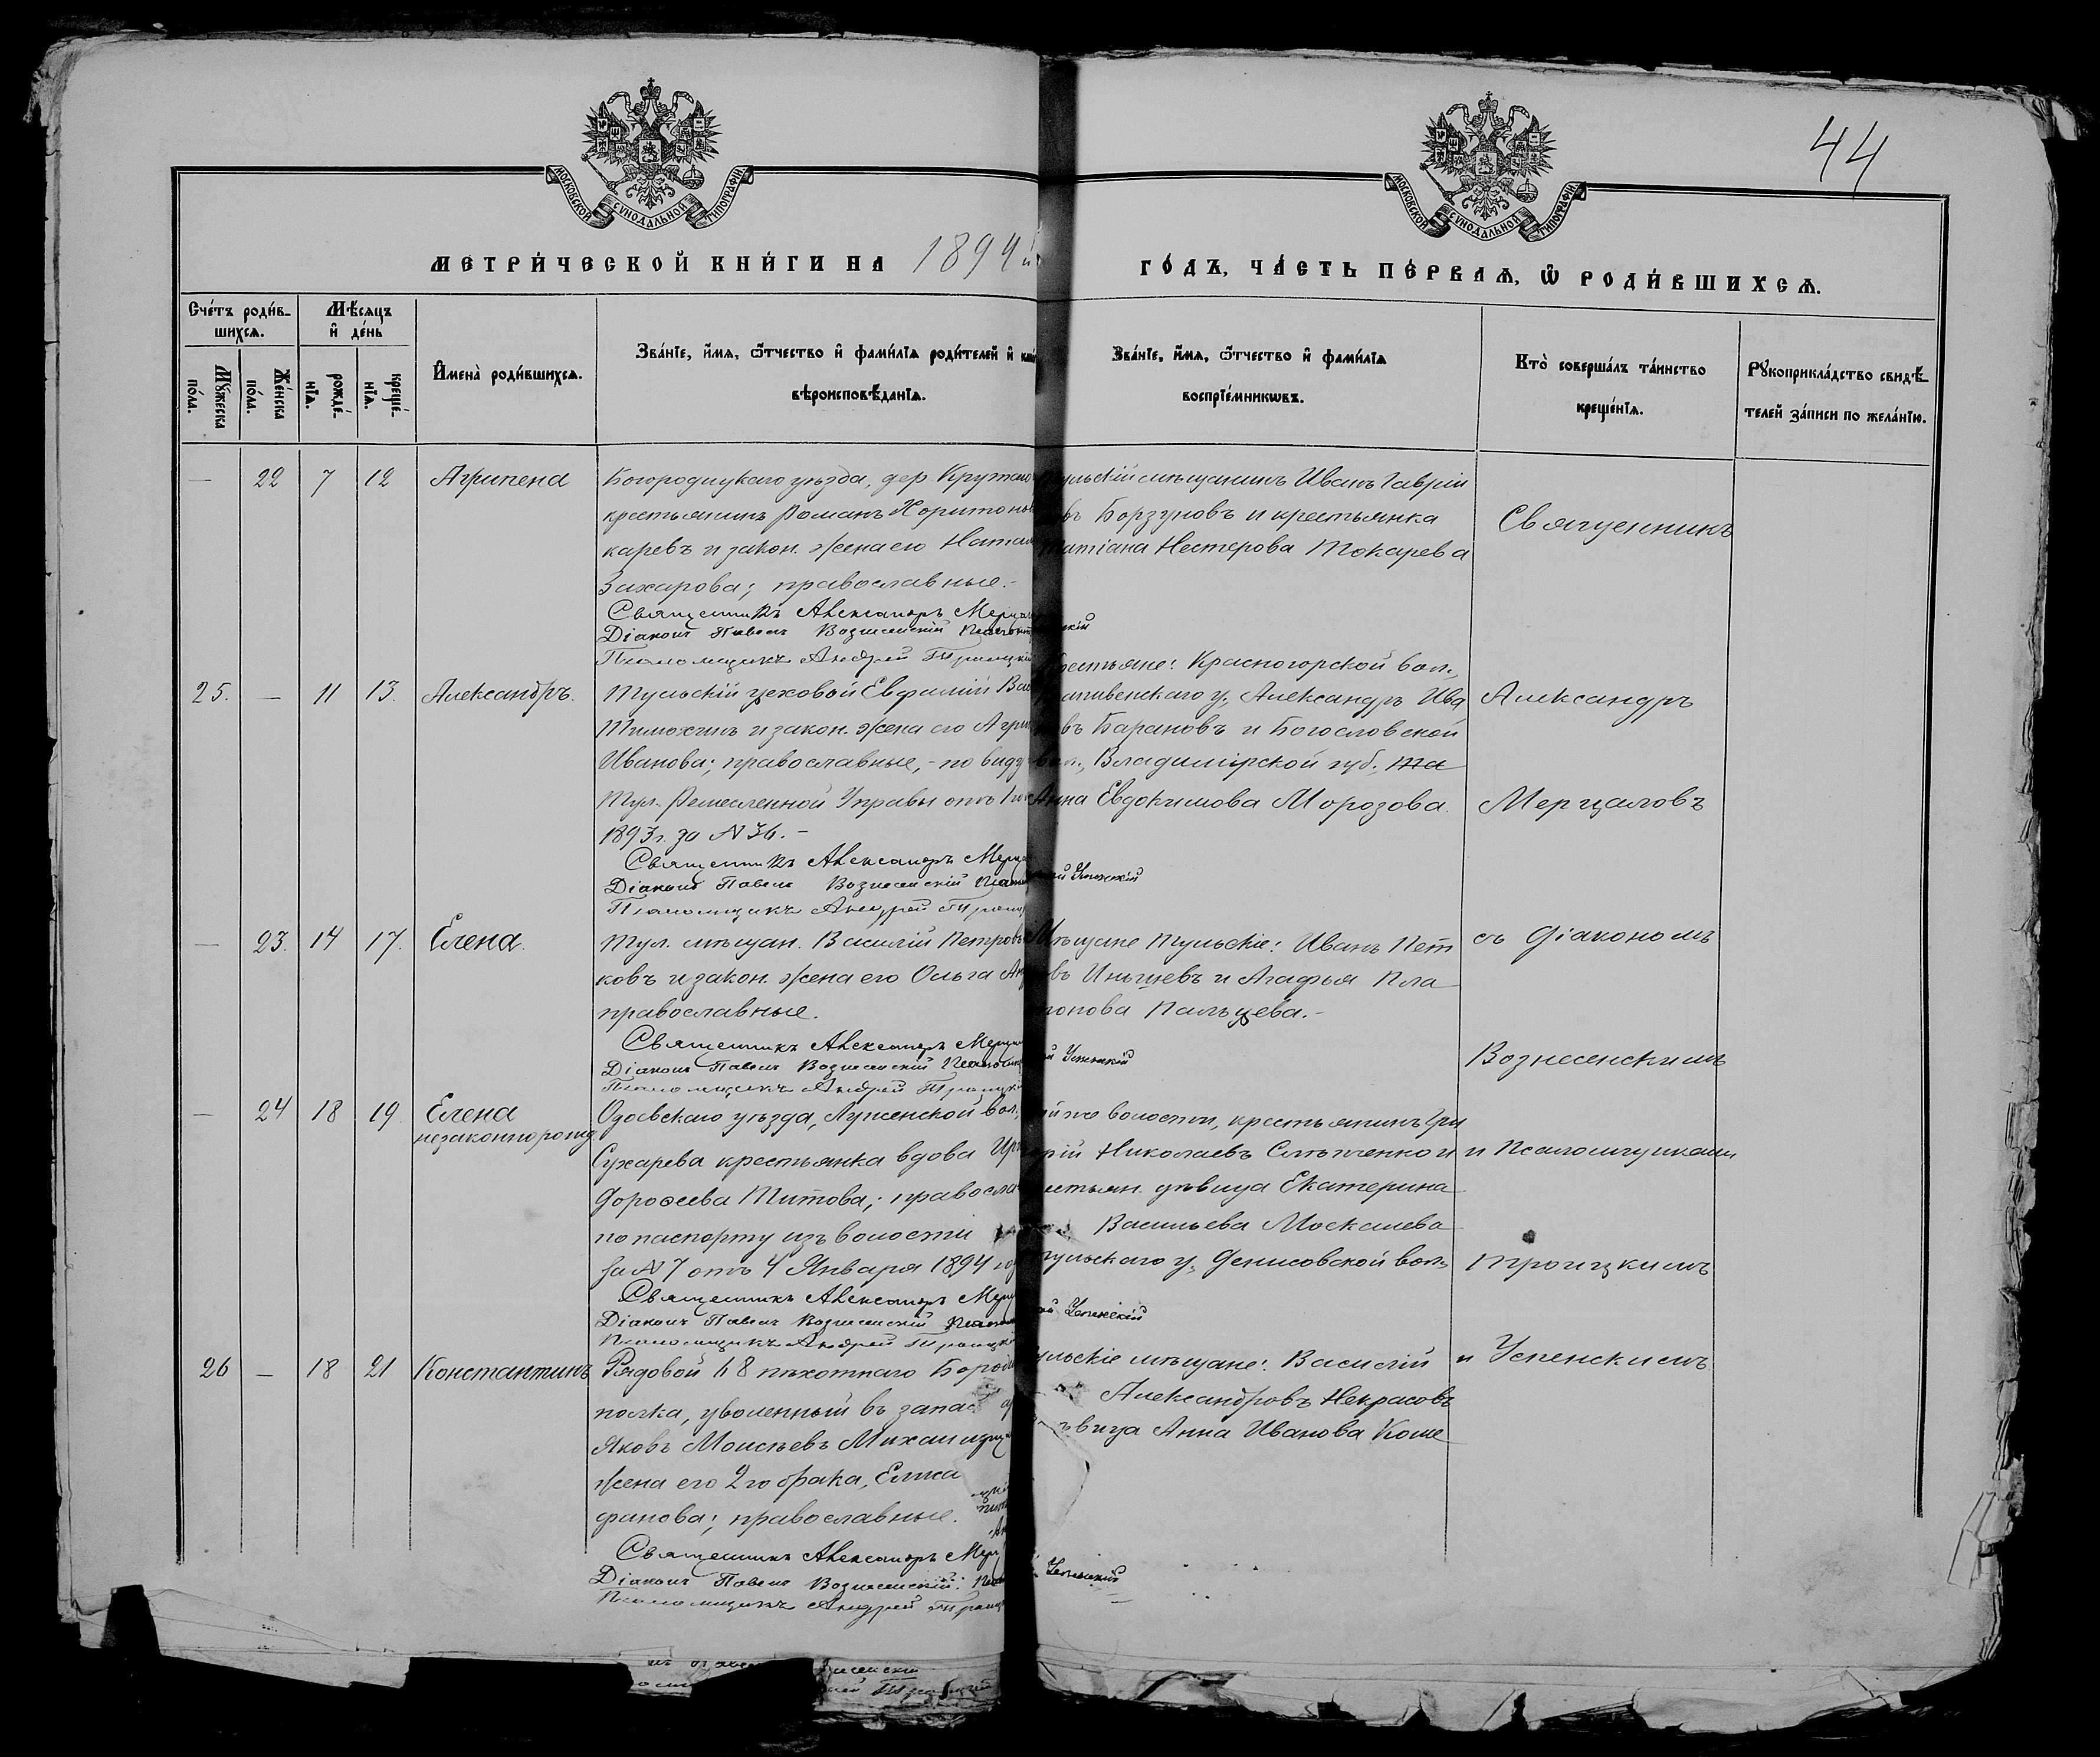 44
МОСКОВСКОЙ СУНОДАЛЬНОЙ ТИПОГРАФІИ
МОСКОВСКОЙ СУНОДАЛЬНОЙ ТИПОГРАФІИ
МЕТРИ́ЧЕСКОЙ КНИ́ГИ НА 1894 й
ГО́ДЪ, ЧА́СТЬ ПЕ́РВАѦ, Ѡ҆ РОДИ́ВШИХСѦ.
Сче́тъ роди́в-
шихсѧ.
Мѣ́сѧцъ
и҆ де́нь
Мꙋ́жеска
по́ла.
Же́нска
по́ла.
рожде́-
нїѧ.
креще́-
нїѧ.
И҆мена̀ роди́вшихсѧ.
Зва́нїе, и҆́мѧ, ѻ҆́тчество и҆ фами́лїѧ роди́телей и҆
вѣроисповѣ́данїѧ.
Зва́нїе, и҆́мѧ, ѻ҆́тчество и҆ фами́лїѧ
воспрїе́мникѡвъ.
Кто̀ соверша́лъ та́инство
креще́нїѧ.
Рꙋкоприкла́дство свидѣ́-
телей за́писи по жела́нїю.
— 22 7 12 Агрипена
Богородицкаго уѣзда, дер
крестьянинъ Романъ
каревъ и закон. жена его
Захарова; православные.-
Священникъ Александръ
Діаконъ Павелъ Вознесенскій
Псаломщикъ Андрей Троицкій
Тульскій мѣщанинъ Иванъ Гавріи
въ Борзуновъ и крестьянка
Татіана Нестерова Токарева
Священникъ
25. — 11 13. Александръ.
Тульскій цеховой Евфимій
Тимохинъ и закон. жена его
Иванова; православные,- по виду
Тул. Ремесленной Управы отъ
1893 г. за № 36.-
Священникъ Александръ
Діаконъ Павелъ Вознесенскій
Псаломщикъ Андрей
Крестьяне: Красногорской вол.,
Крапивенскаго у., Александръ Ива
въ Барановъ и Богословской
вол., Владимірской губ.,
Анна Евдокимова Морозова.
Успенскій
Александръ
Мерцаловъ
— 23. 14 17. Елена.
Тул. мѣщан. Василій Петровъ
ковъ и закон. жена его Ольга
православные.
Священникъ Александръ
Діаконъ Павелъ Вознесенскій
Псаломщикъ Андрей
Мѣщане Тульскіе: Иванъ Пет
въ Иньшевъ и Агафья Пла
тонова Пальцева.-
Успенскій
съ Діакономъ
Вознесенскимъ
— 24 18 19 Елена
незаконнорожд
Одоевскаго уѣзда, Луженской вол.,
Сухарева крестьянка вдова
Дорофеева Титова;
по паспорту изъ волости
за № 7 отъ 4 Января 1894
Священникъ Александръ
Діаконъ Павелъ Вознесенскій
Псаломщикъ Андрей
той же волости, крестьянинъ Гри
горій Николаевъ и
крестьян. дѣвица Екатерина
Васильева Москалева
Тульскаго у., Денисовской вол.
Успенскій
и Псаломщиками
Троицкимъ
26 — 18 21 Константинъ
Рядовой 48 пѣхотнаго
полка, уволенный въ запас
Яковъ Моисѣевъ
жена его 2го брака,
фанова; православные.
Священникъ Александръ
Діаконъ Павелъ Вознесенскій
Псаломщикъ Андрей
Тульскіе мѣщане: Василій
Александровъ Некрасовъ
дѣвица Анна Иванова
Успенскій
и Успенскимъ